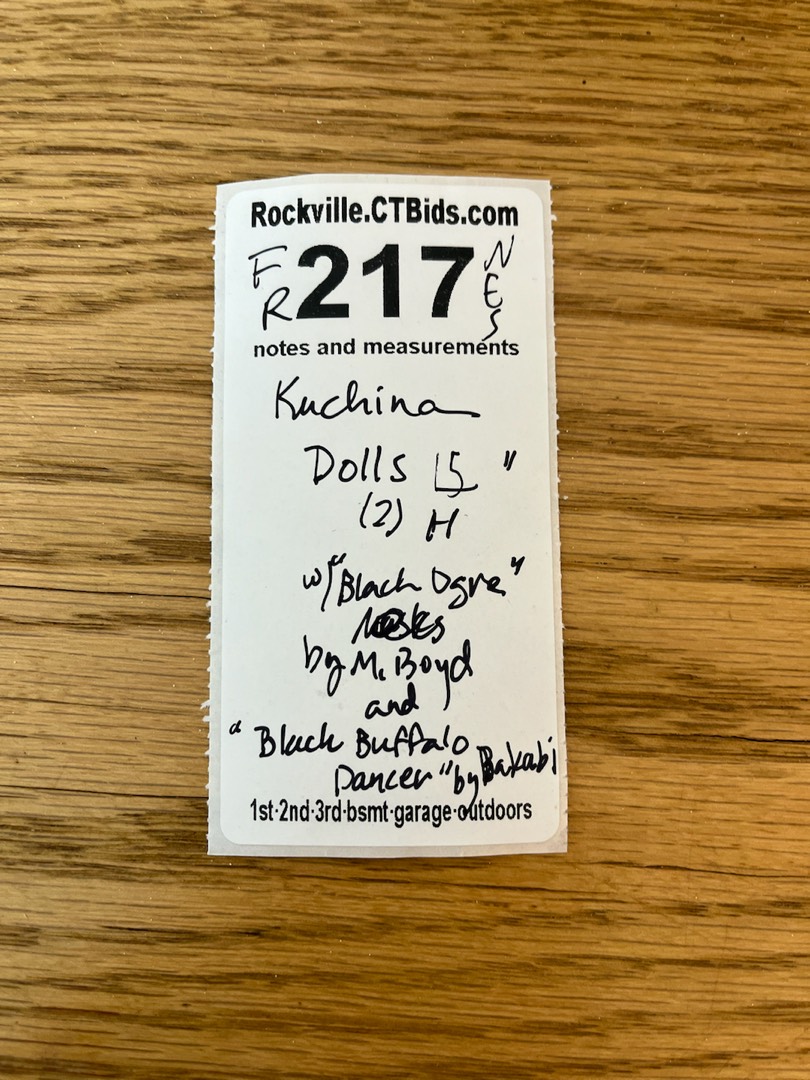 Rockville.CTBids.com
FR 217 NES
notes and measurements
Kuchina
Dolls 15"
(2) H
w/ "Black Ogre"
by M. Boyd
and
"Black Buffalo
Dancer" by Bakabi
1st·2nd·3rd·bsmt·garage·outdoors